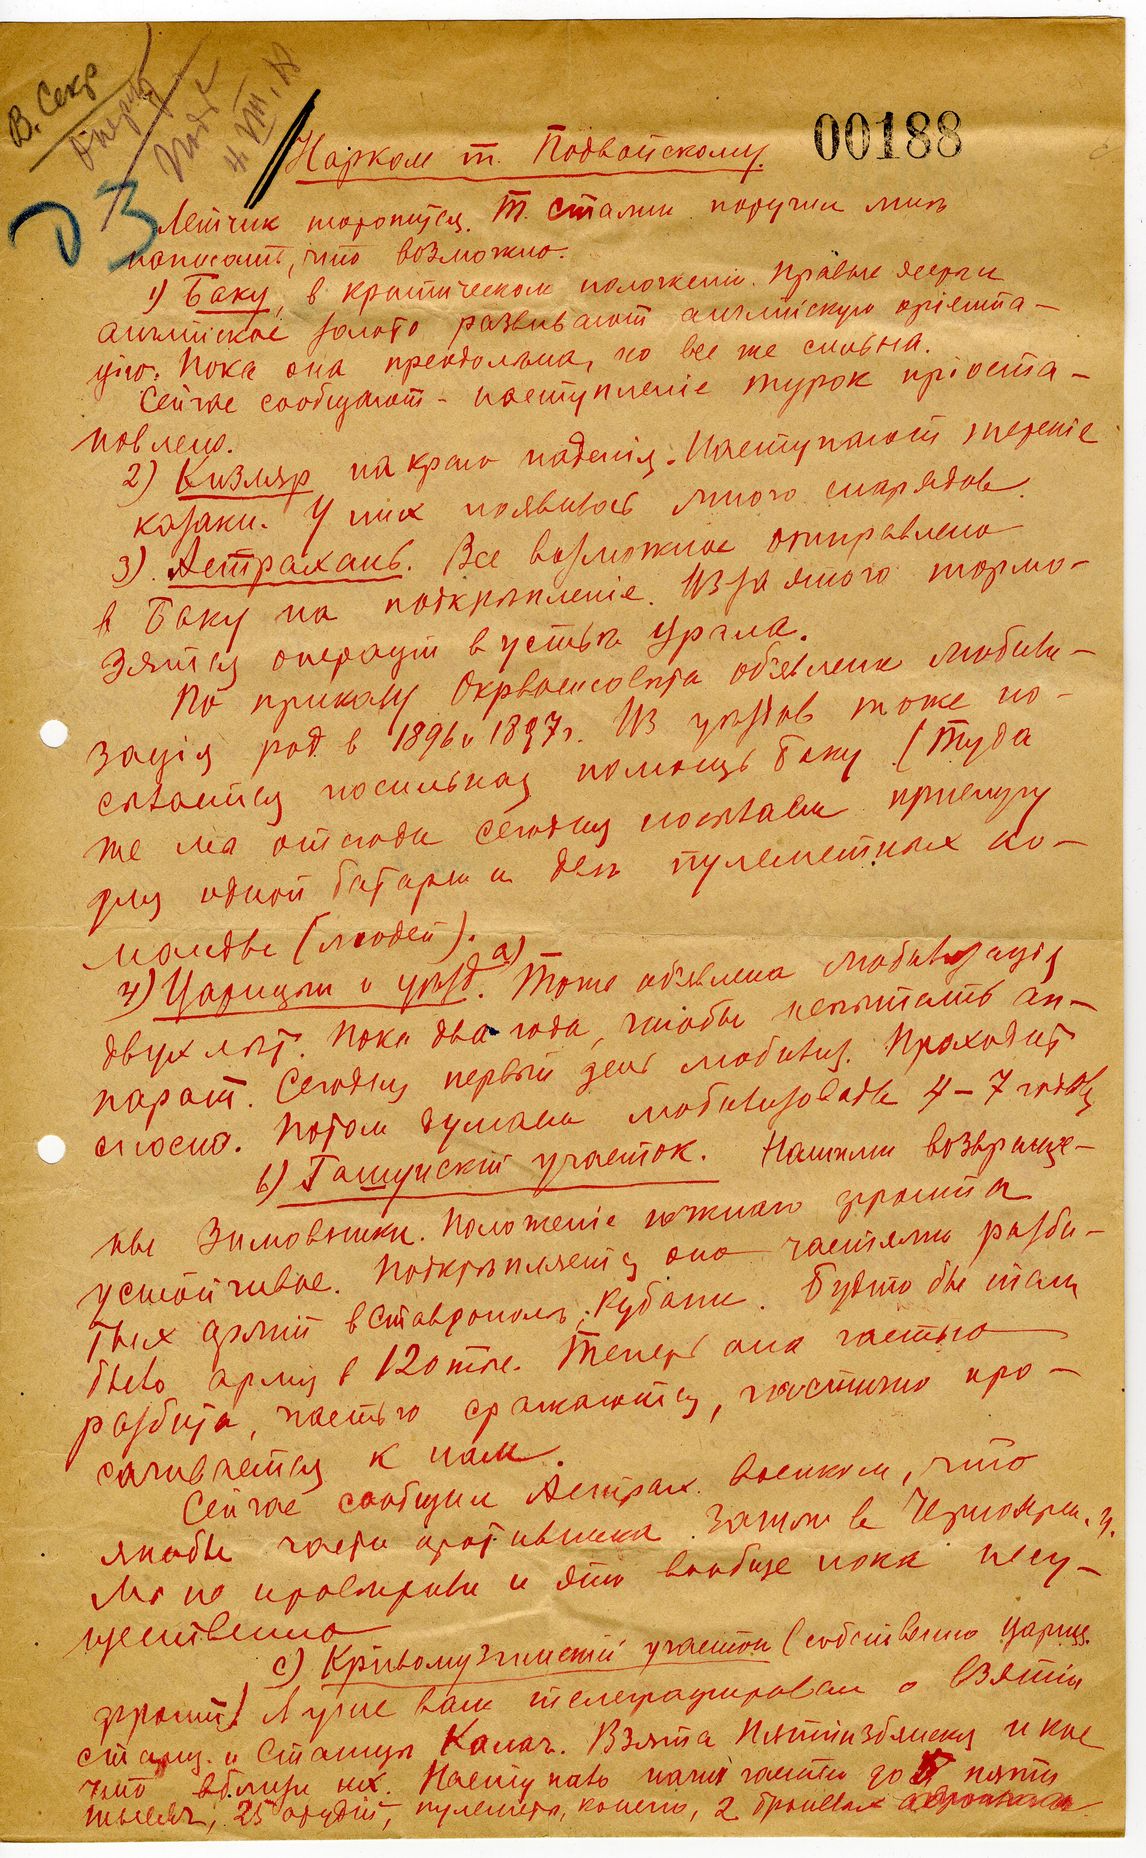 В. Секр
Операт
Подв
4 VIII. 18
00188
Нарком т. Подвойскому.
ДЗ
Летчик торопится. Т. Сталин поручил мне
написать, что возможно.
1) Баку, в критическом положении. Правые эсеры и
английское золото развивают английскую ориента-
цию. Пока она преодолима, но все же сильна.
Сейчас сообщают - наступление турок приоста-
новлено.
2) Кизляр на краю падения. Наступают терские
казаки. У них появилось много снарядов.
3) Астрахань. Все возможное отправлено
в Баку на подкрепление. Из за этого тормо-
зятся операции в устье Урала.
По приказу Окрвоенсовета объявлена мобили-
зация род в 1896 и 1897 г. Из уездов тоже по-
сылается посильная помощь Баку (туда
же мы отсюда сегодня послали прислугу
для одной батареи и две пулеметных ко-
манды (людей).
4) Царицын и уезд. а) Тоже объявлена мобилизация
двух лет. Пока два года, чтобы испытать ап-
парат. Сегодня первый день мобилиз. Проходит
сносно. Потом думаем мобилизовать 4-7 годов
b) Гашунский участок. Нашими возвраще-
ны Зимовники. Положение южного фронта
устойчивое. Подкрепляется оно частями разби-
тых армий в Ставрополе, Кубани. Будто бы там
была армия в 120 тыс. Теперь она частью
разбита, частью сражается, частично про-
сачивается к нам.
Сейчас сообщил Астрах. военком, что
якобы части противника зашли в Черноярск. у.
Мы не проверили и это вообще пока несу-
щественно
с) Кривомузгинский участок (собственно Цариц.
фронт) Я уже вам телеграфировал о взятии
станц. и станицы Калач. Взята Пятиизбянская и кое
что вблизи них. Наступало наших частей до пяти
тысяч, 25 орудий, пулеметы, конечно, 2 броневых